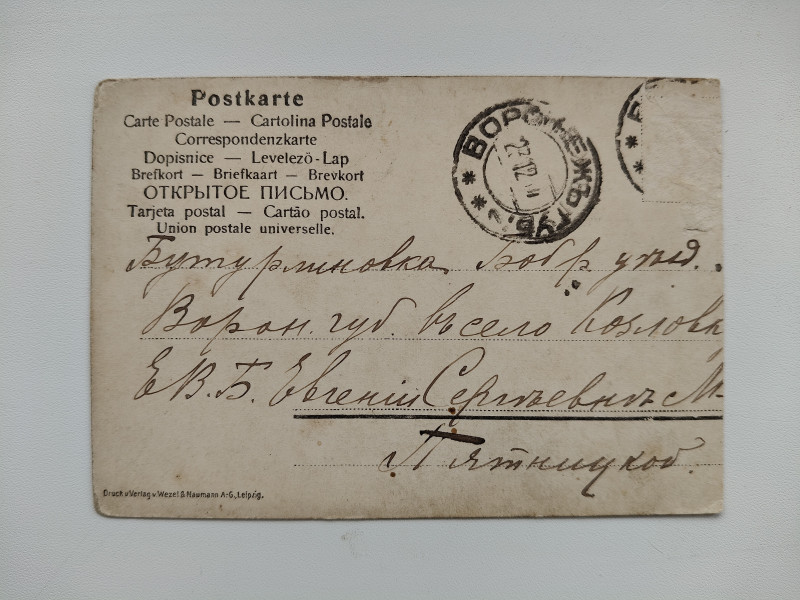 Postkarte
Carte Postale — Cartolina Postale
Correspondenzkarte
Dopisnice — Levelezö-Lap
Brefkort — Briefkaart — Brevkort
ОТКРЫТОЕ ПИСЬМО.
Tarjeta postal — Cartão postal.
Union postale universelle.
ВОРОНЕЖЪ ГУБ.
23.12
Бутурлиновка, Бобр. уѣзд.
Ворон. губ. въ село Козловк
Е.В.Б. Евгеніи Сергѣевнѣ
Пятницкой.
Druck u Verlag v. Wezel & Naumann A.-G., Leipzig.